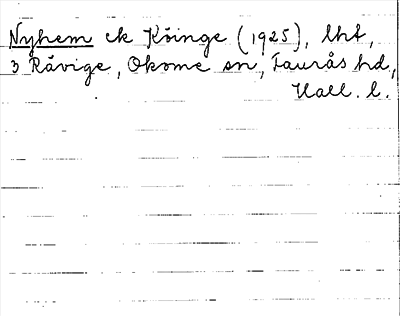 Nyhem ek Köinge (1925), lht,
3 Råvige, Okome sn, Faurås hd,
Hall. l.